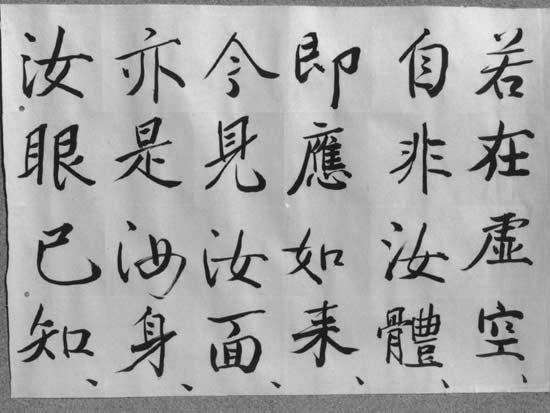 若在虛空、
自非汝體、
即應如来、
今見汝面、
亦是汝身、
汝眼已知、